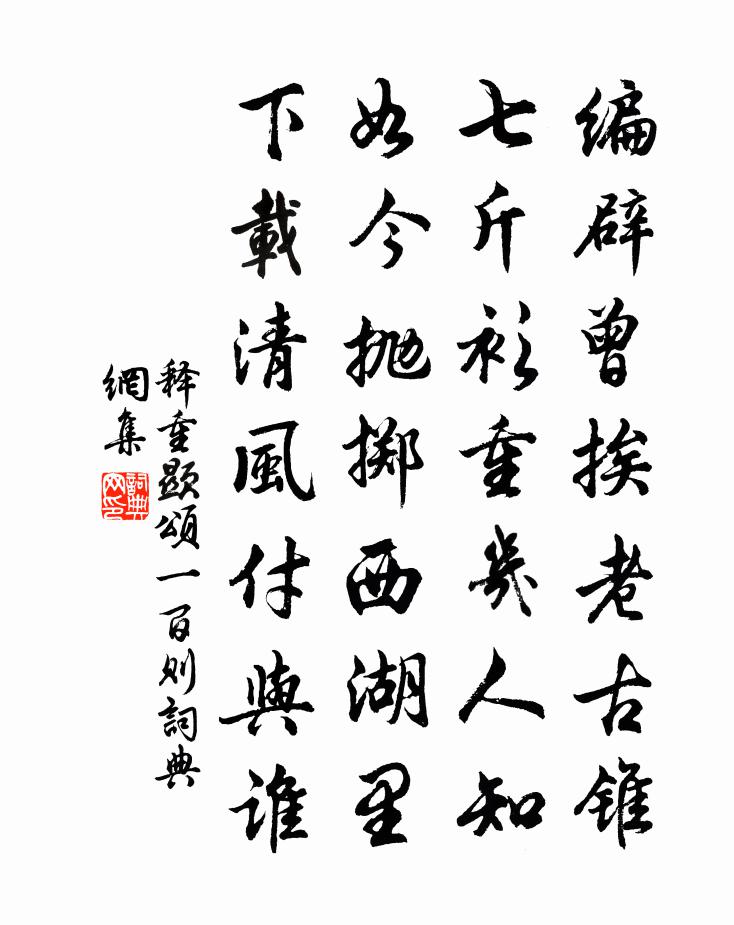 編辟曾挨老古錐
七斤衫重幾人知
如今抛擲西湖里
下載清風付與誰
釋重顯頌一百則詞典
網集
詞典網印